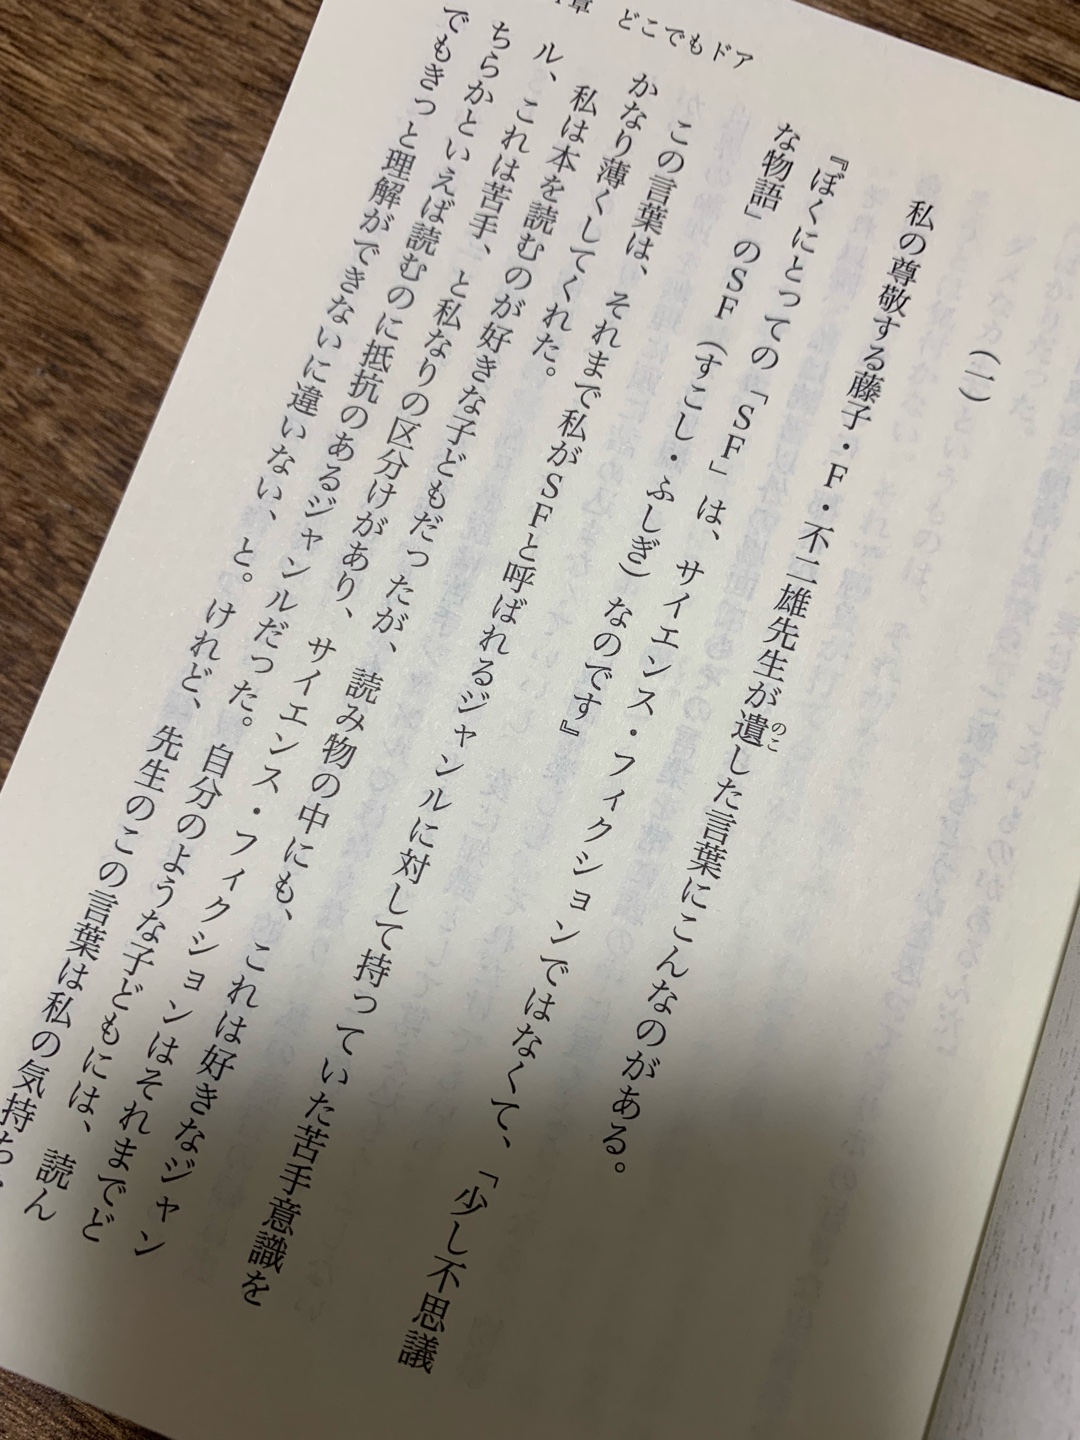 章 どこでもドア
(一)
私の尊敬する藤子・F・不二雄先生が遺した言葉にこんなのがある。
のこ
『ぼくにとっての「SF」は、サイエンス・フィクションではなくて、「少し不思議
な物語」のSF(すこし・ふしぎ)なのです』
この言葉は、それまで私がSFと呼ばれるジャンルに対して持っていた苦手意識を
かなり薄くしてくれた。
私は本を読むのが好きな子どもだったが、読み物の中にも、これは好きなジャン
ル、これは苦手、と私なりの区分けがあり、サイエンス・フィクションはそれまでど
ちらかといえば読むのに抵抗のあるジャンルだった。自分のような子どもには、読ん
でもきっと理解ができないに違いない、と。けれど、先生のこの言葉は私の気持ち